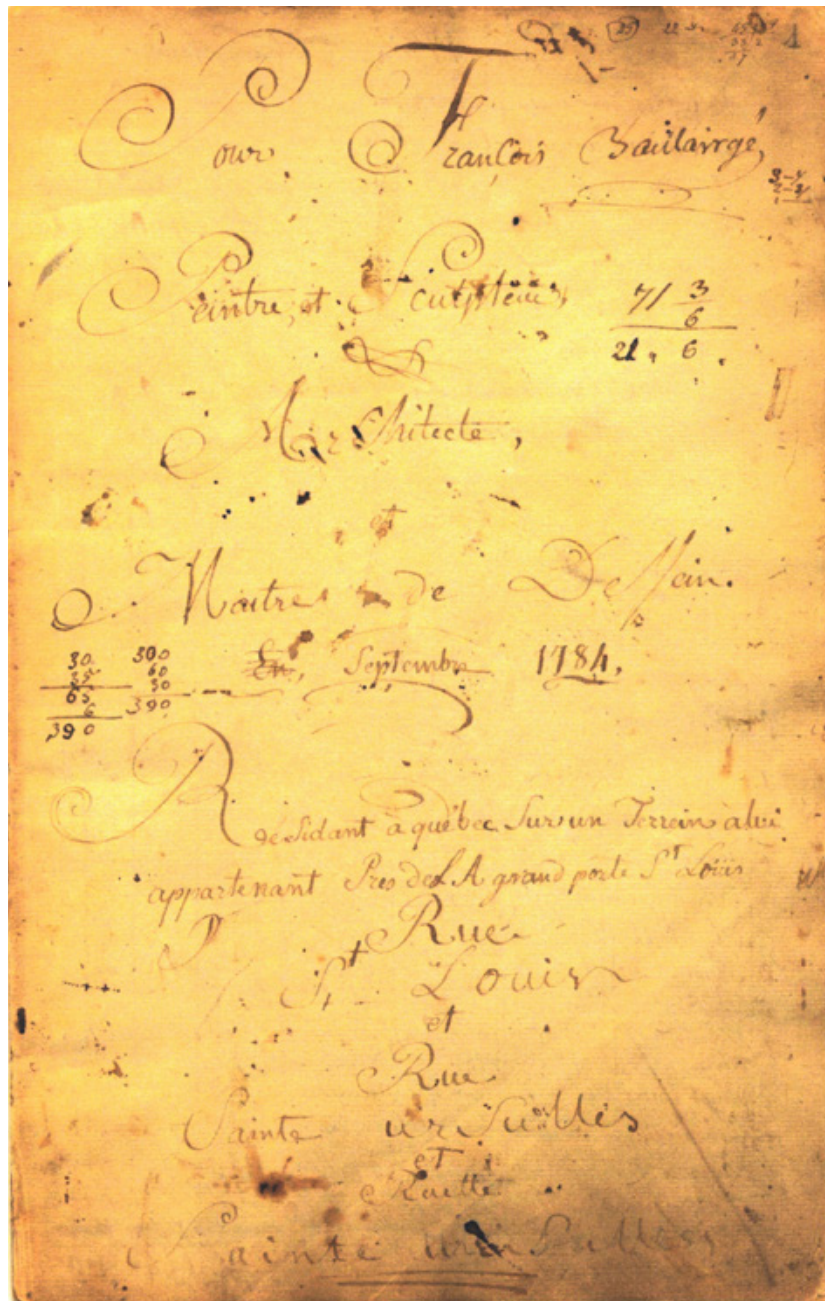 Pour François Baillairgé,
Peintre, et Sculpteur,
71 3
6
21 , 6 ,
&
Architecte,
et
Maitre de Dessain.
30 300
35 60
65 30
6 390
390
En, Septembre 1784,
Résidant à québec Sur un Terrein à lui
appartenant Pres de LA grand porte St Loüis
Rue
St Louis
et
Rue
Sainte ursulles
et
Ruette
Sainte ursulles